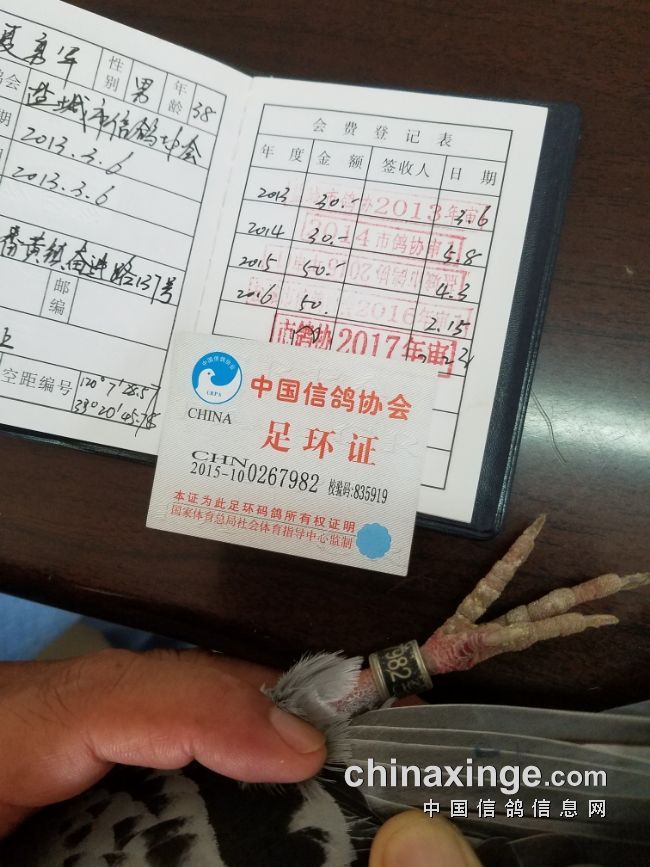 夏勇军 性别 男 年龄 38
盐城市信鸽协会
2013.3.6
2013.3.6
番黄镇奋进路237号
邮编
空距编号 120°7′28.57
33°20′45.78
会费登记表
年度 金额 签收人 日期
2013 30.- 3.6
2013年审
2014 30.- 5.8
2014市鸽协审
2015 50.- 4.3
2016 50. 2.15
2016年审
市鸽协2017年审
中国信鸽协会
CRPA
中国信鸽协会
CHINA
足环证
CHN
2015-10 0267982 校验码:835919
本证为此足环码鸽所有权证明
国家体育总局社会体育指导中心监制
982
chinaxinge.com
中国信鸽信息网